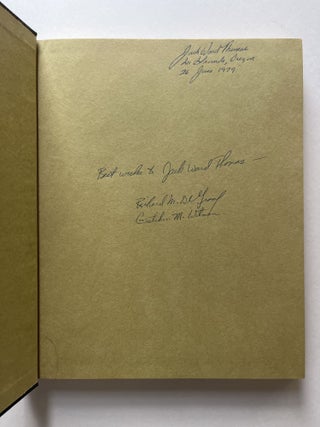 Jack Ward Thomas
La Grande, Oregon
26 June 1979
Best wishes to Jack Ward Thomas —
Richard M. DeGraaf
Gretchin M. Witman